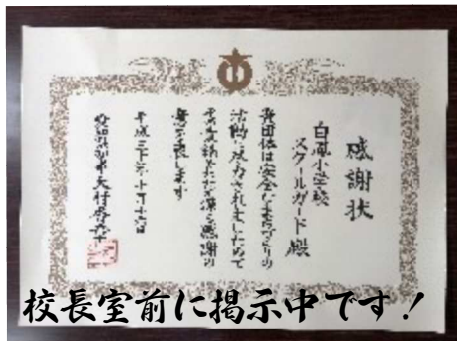 感謝状
白鳳小学校
スクールガード殿
貴団体は安全なまちづくりの
活動に尽力されましたので
その功績をたたえ深く感謝の
意を表します
平成三十年十月十六日
愛知県知事大村秀章
校長室前に掲示中です!